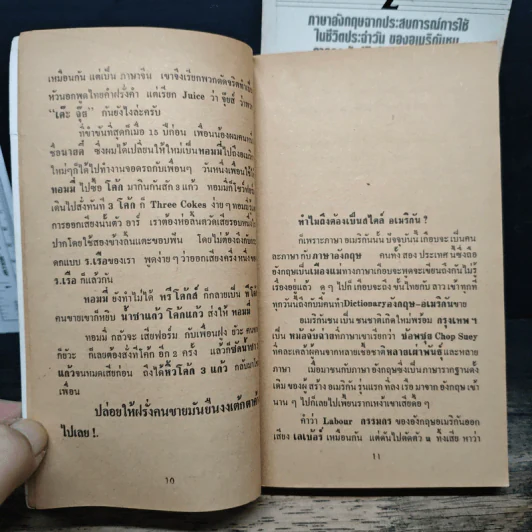 2
ภาษาอังกฤษจากประสบการณ์การใช้
ในชีวิตประจำวัน ของอเมริกันชน
เหมือนกัน แต่เป็น ภาษาจีน เขาจึงเรียกพวกดัดจริต
หัวนอกพูดไทยคำฝรั่งคำ แต่เรียก Juice ว่า จุ๊ยส์
"เต๊ะ จุ๊ย" กันยังไงล่ะครับ
ที่ขำขันที่สุดก็เมื่อ 15 ปีก่อน เพื่อนน้องผมคน
ซึ่งผมได้เปลี่ยนให้ใหม่เป็นทอมมี่ไปถึง
ใหม่ๆก็ได้ไปทำงานจอดรถกับเพื่อนๆ วันหนึ่งเพื่อนให้
ทอมมี่ ไปซื้อ โค้ก มากินกันสัก 3 แก้ว ทอมมี่ก็
เดินไปสั่งทันที 3 โค้ก ก็ Three Cokes ง่าย ๆ
การออกเสียงนั้นตัว อาร์ เราต้องห่อลิ้นตวัดเสียรอบ
ปากโดยใช้สองข้างลิ้นแตะขอบฟัน โดยไม่ต้องถึง
ตกแบบ ร.เรือของเรา พูดง่าย ๆ ว่าออกเสียงครึ่งหนึ่ง
ร.เรือ ก็แล้วกัน
ทอมมี่ ยังทำไม่ได้ ทรีโค้กส์ ก็กลายเป็น
คนขายเขาก็หยิบ น้ำชาแก้ว โค้กแก้ว ส่งให้ ทอมมี่
ทอมมี่ กลัวจะ เสียฟอร์ม กับเพื่อนฝูง
ก็ยัวะ ก็เลยต้องสั่งทีโค้ก อีก 2 ครั้ง แล้วก็ซัดน้ำชา
แก้วจนหมดเสียก่อน ถึงได้หิ้วโค้ก 3 แก้ว
เพื่อน
ปล่อยให้ฝรั่งคนขายมันยืนงงเต้ก
ไปเลย !.
10
ทำไมถึงต้องเป็นสไตล์ อเมริกัน ?
ก็เพราะภาษา อเมริกันนั้น ปัจจุบันนี้ เกือบจะ เป็นคน
ละภาษา กับ ภาษาอังกฤษ คนทั้ง สอง ประเทศ ซึ่งถือ
อังกฤษเป็นเมืองแม่ทางภาษาเกือบจะพูดจะเขียนถึงกันไม่รู้
เรื่องอยู่แล้ว ขั้นให้คนไทยกับ สาวเขา
ทุกวันนี้ถึงกับมีคนทำDictionaryอังกฤษ-อเมริกันขาย
อเมริกันชน เป็น ชนชาติเกิดใหม่พร้อม กรุงเทพ ฯ
เป็น หม้อจับฉ่ายที่ภาษาเขาเรียกว่า ช้อพซุ่ย Chop Suey
ที่คละเคล้าผู้คนจากหลายเชื้อชาติ หลายเผ่าพันธุ์ และหลาย
ภาษา เมื่อมาชนกับภาษา อังกฤษซึ่งเป็นภาษารากฐานดั้ง
เดิม ของผู้ สร้าง อเมริกัน รุ่นแรก
นาน ๆ ไปก็เลยไปเพี้ยนรากเหง้าเขาเสียดื้อ ๆ
คำว่า Labour กรรมกร ของอังกฤษอเมริกันออก
เสียง เลเบ้อร์ เหมือนกัน แต่ดันไปตัดตัว u ทิ้งเสีย หาว่า
11